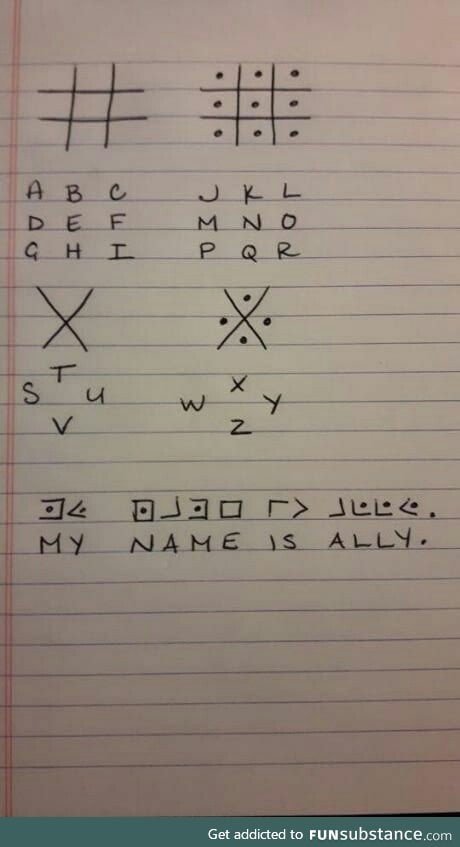 A B C J K L
D E F M N O
G H I P Q R
T X
S U W Y
V Z
MY NAME IS ALLY.
Get addicted to FUNsubstance.com